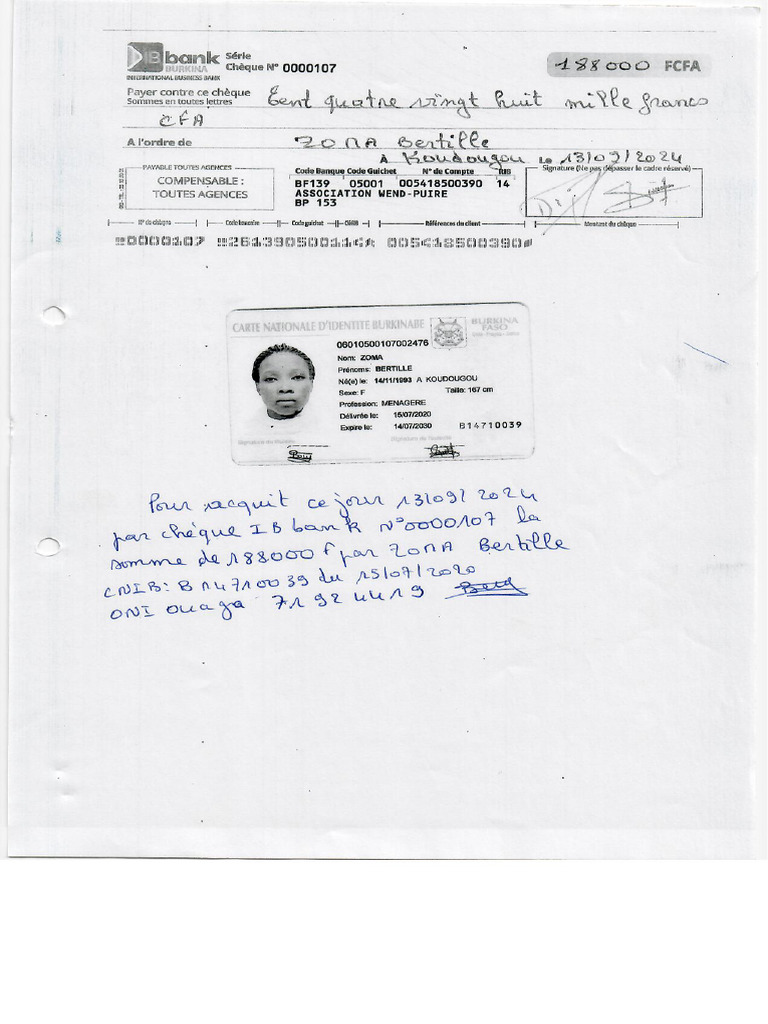 IB bank
BURKINA
INTERNATIONAL BUSINESS BANK
Série
Chèque N° 0000107
188000 FCFA
Payer contre ce chèque
Sommes en toutes lettres
Cent quatre vingt huit mille francs
CFA
A l'ordre de ZOMA Bertille
A Koudougou Le 13/09/2024
PAYABLE TOUTES AGENCES
COMPENSABLE :
TOUTES AGENCES
Code Banque Code Guichet N° de Compte RIB
BF139 05001 005418500390 14
ASSOCIATION WEND-PUIRE
BP 153
Signature (Ne pas dépasser le cadre réservé)
N° de chèque Code bancaire Code guichet Références du client Montant du chèque
0000107
CARTE NATIONALE D'IDENTITE BURKINABE
BURKINA
FASO
06010500107002476
Nom: ZOMA
Prénoms: BERTILLE
Né(e) le: 14/11/1993 A KOUDOUGOU
Sexe: F Taille: 167 cm
Profession: MENAGERE
Délivrée le: 15/07/2020
Expire le: 14/07/2030 B14710039
Pour acquit ce jour 13/09/2024
par chèque IB bank N°0000107 la
somme de 188000 f par ZOMA Bertille
CNIB: B14710039 du 15/07/2020
ONI Ouaga 71 92 44 19